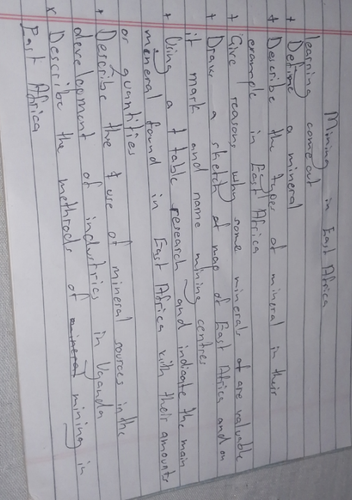 Mining in East Africa
learning come out
+ Define a mineral
+ Describe the types of mineral in their
example in East Africa
+ Give reasons why some minerals at are valuable
+ Draw a sketch at map of East Africa and on
it mark and name mining centres
+ Using a t table research and indicate the main
mineral found in East Africa with their amounts
or quantities
+ Describe the t use of mineral sources in the
development of industries in Uganda
x Describe the methods of mineral mining in
East Africa